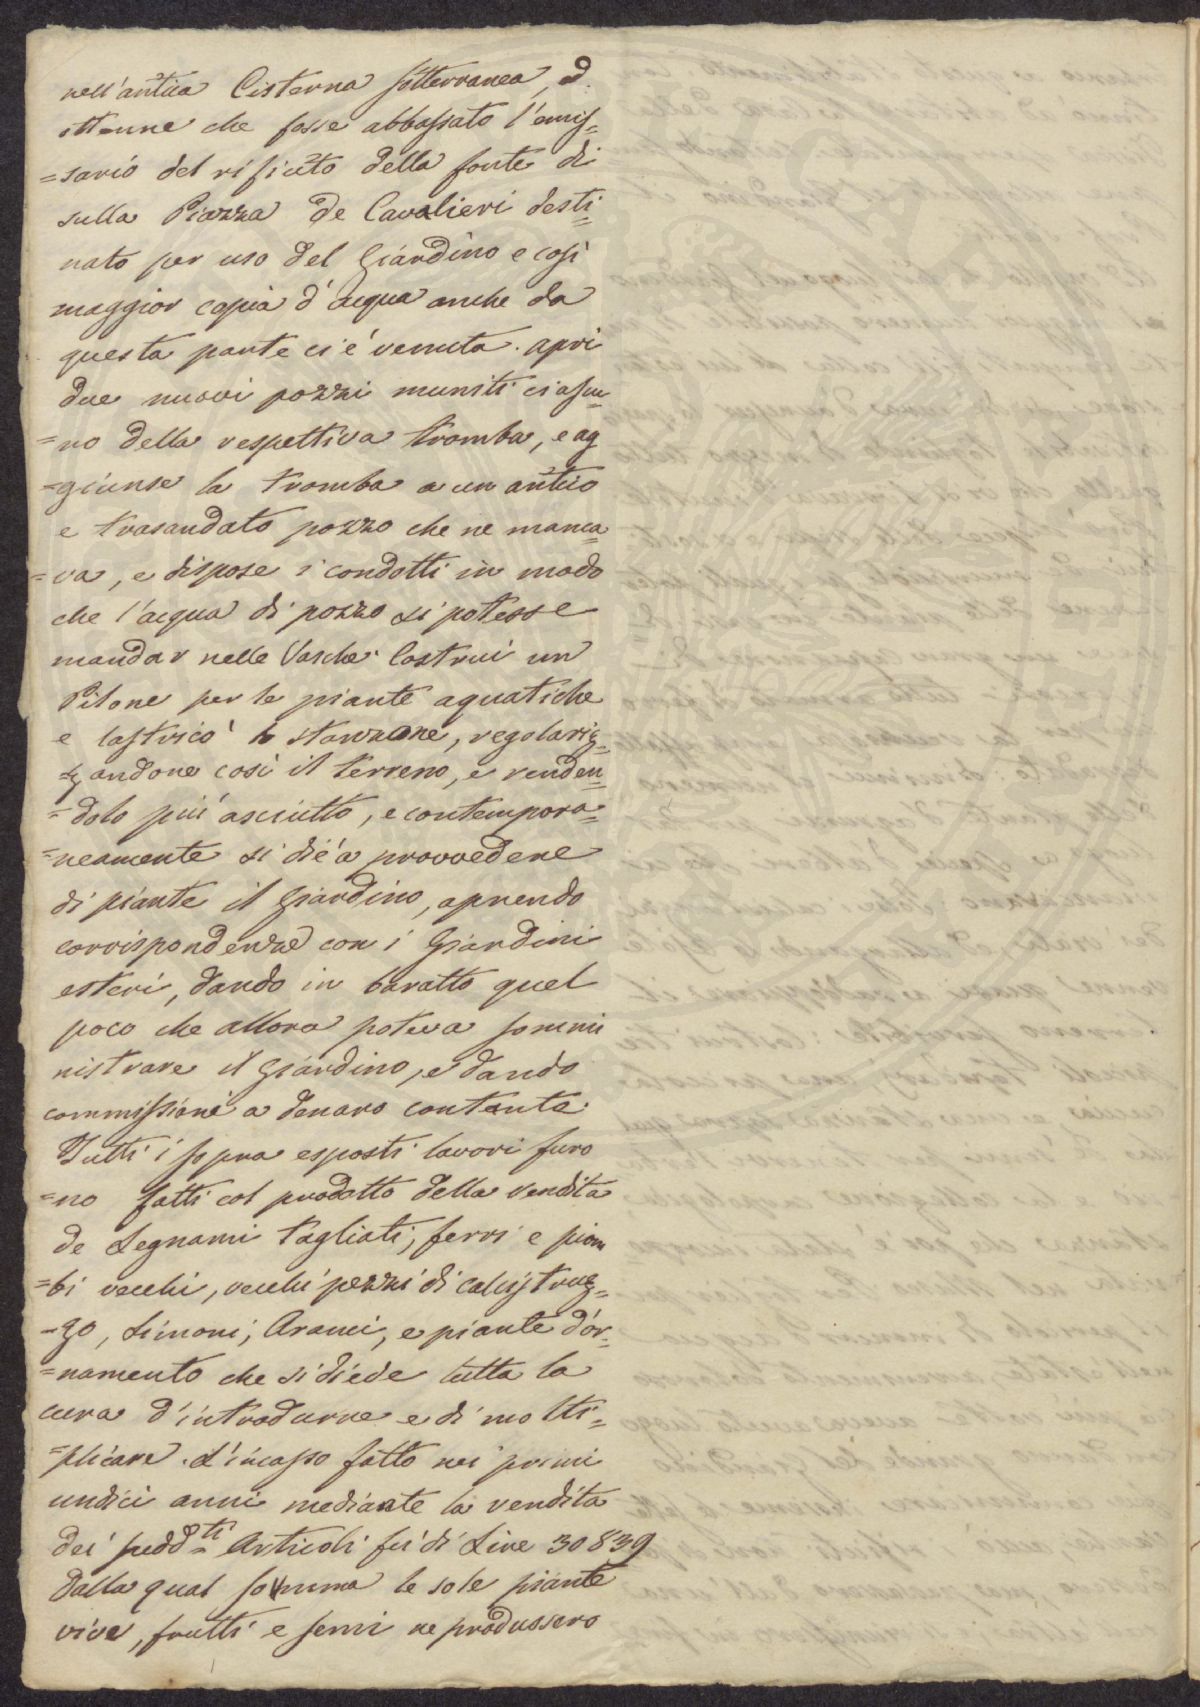 nell'antica Cisterna sotterranea, ed
ottenne che fosse abbassato l'emis=
=sario del rifiuto della fonte di
sulla Piazza de Cavalieri desti=
nato per uso del Giardino e così
maggior copia d'acqua anche da
questa parte ci é venuta. aprì
due nuovi pozzi muniti ciascu=
=no della respettiva tromba, e ag
=giunse la tromba a un antico
e trasandato pozzo che ne manca
=va, e dispose i condotti in modo
che l'acqua di pozzo si potesse
mandar nelle Vasche. Costruì un
Pilone per le piante aquatiche
e lastricò lo stanzone, regolariz=
=zandone così il terreno, e renden=
=dolo più asciutto, e contempora=
=neamente si diè a provvedere
di piante il Giardino, aprendo
corrispondenze con i Giardini
esteri, dando in baratto quel
poco che allora poteva sommi
nistrare il Giardino, e dando
commissioni a denaro contante.
Tutti i sopra esposti lavori furo
=no fatti col prodotto della vendita
de Legnami tagliati, ferri e piom
=bi vecchi, vecchi pezzi di calcistruz=
=zo, Limoni, Aranci, e piante d'or=
=namento che si diede tutta la
cura d'introdurne e di molti=
=plicare. L'incasso fatto nei primi
undici anni mediante la vendita
dei sudd.ti Articoli fu di Lire 30839
dalla qual somma le sole piante
vive, frutti e semi ne produssero